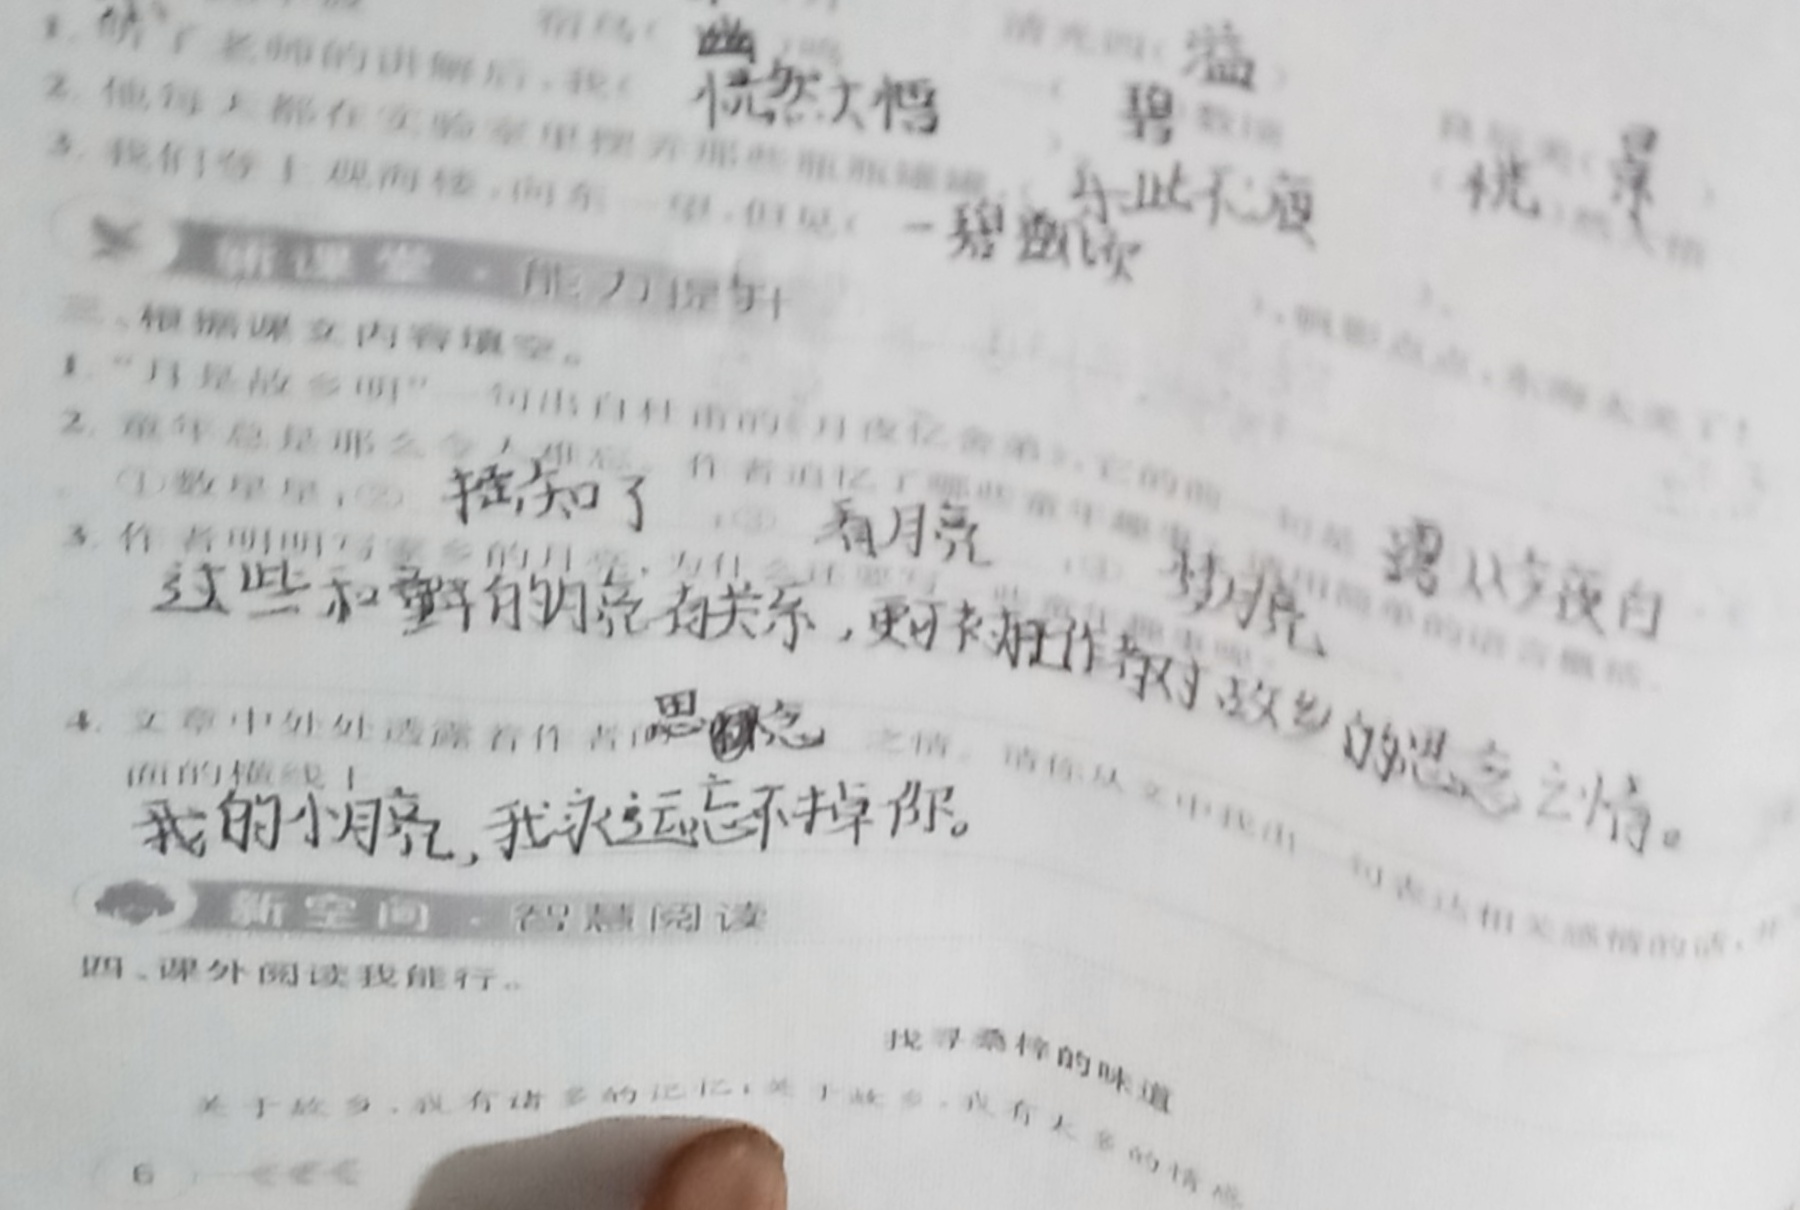 宿鸟( 幽 )鸣 清光四( 溢 )
碧 数顷 良辰美( 景 )
( 恍 )然大悟
1. 听了老师的讲解后,我( 恍然大悟 )。
2. 他每天都在实验室里摆弄那些瓶瓶罐罐,( 乐此不疲 )。
3. 我们登上观海楼,向东一望,但见( 一碧 ),帆影点点,东海太美了!
新课堂·能力提升
三、根据课文内容填空。
1. “月是故乡明”一句出自杜甫的《月夜忆舍弟》,它的前一句是 露从今夜白
2. 童年总是那么令人难忘。作者追忆了哪些童年趣事?请用简单的语言概括。
①数星星;② 摇知了 ;③ 看月亮 ;④ 梦月亮
3. 作者明明写家乡的月亮,为什么还要写一些童年趣事呢?
这些和 的月亮有关系,更 作者对故乡的思念之情。
4. 文章中处处透露着作者的 思念 之情。请你从文中找出一句表达相关感情的话,
面的横线上
我的小月亮,我永远忘不掉你。
新空间·智慧阅读
四、课外阅读我能行。
找寻桑梓的味道
关于故乡,我有诸多的记忆;关于故乡,我有太多的情感
6